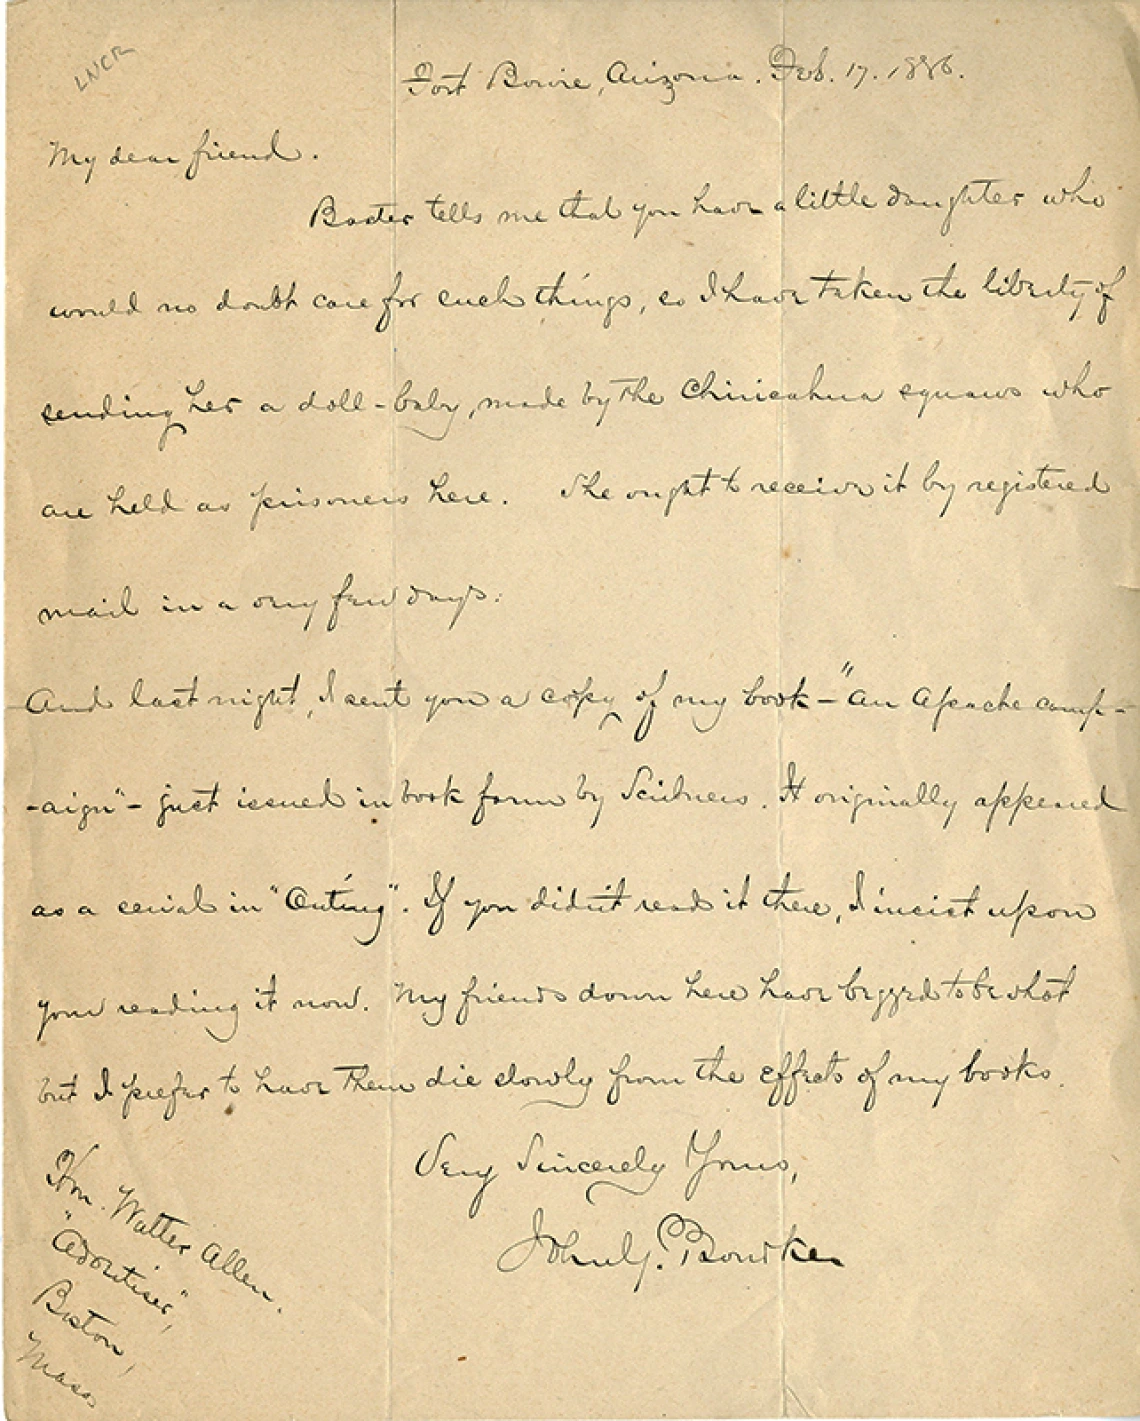 LNCR
Fort Bowie, Arizona. Feb. 17. 1886.
My dear friend.
Baxter tells me that you have a little daughter who
would no doubt care for such things, so I have taken the liberty of
sending her a doll-baby, made by the Chiricahua squaws who
are held as prisoners here. She ought to receive it by registered
mail in a very few days.
And last night, I sent you a copy of my book - "An Apache camp-
-aign" - just issued in book form by Scribners. It originally appeared
as a serial in "Outing". If you didn't read it there, I insist upon
your reading it now. My friends down here have begged to be shot
but I prefer to have them die slowly from the effects of my books.
Very Sincerely Yours,
John G. Bourke
Hon. Walter Allen.
"Advertiser",
Boston,
Mass